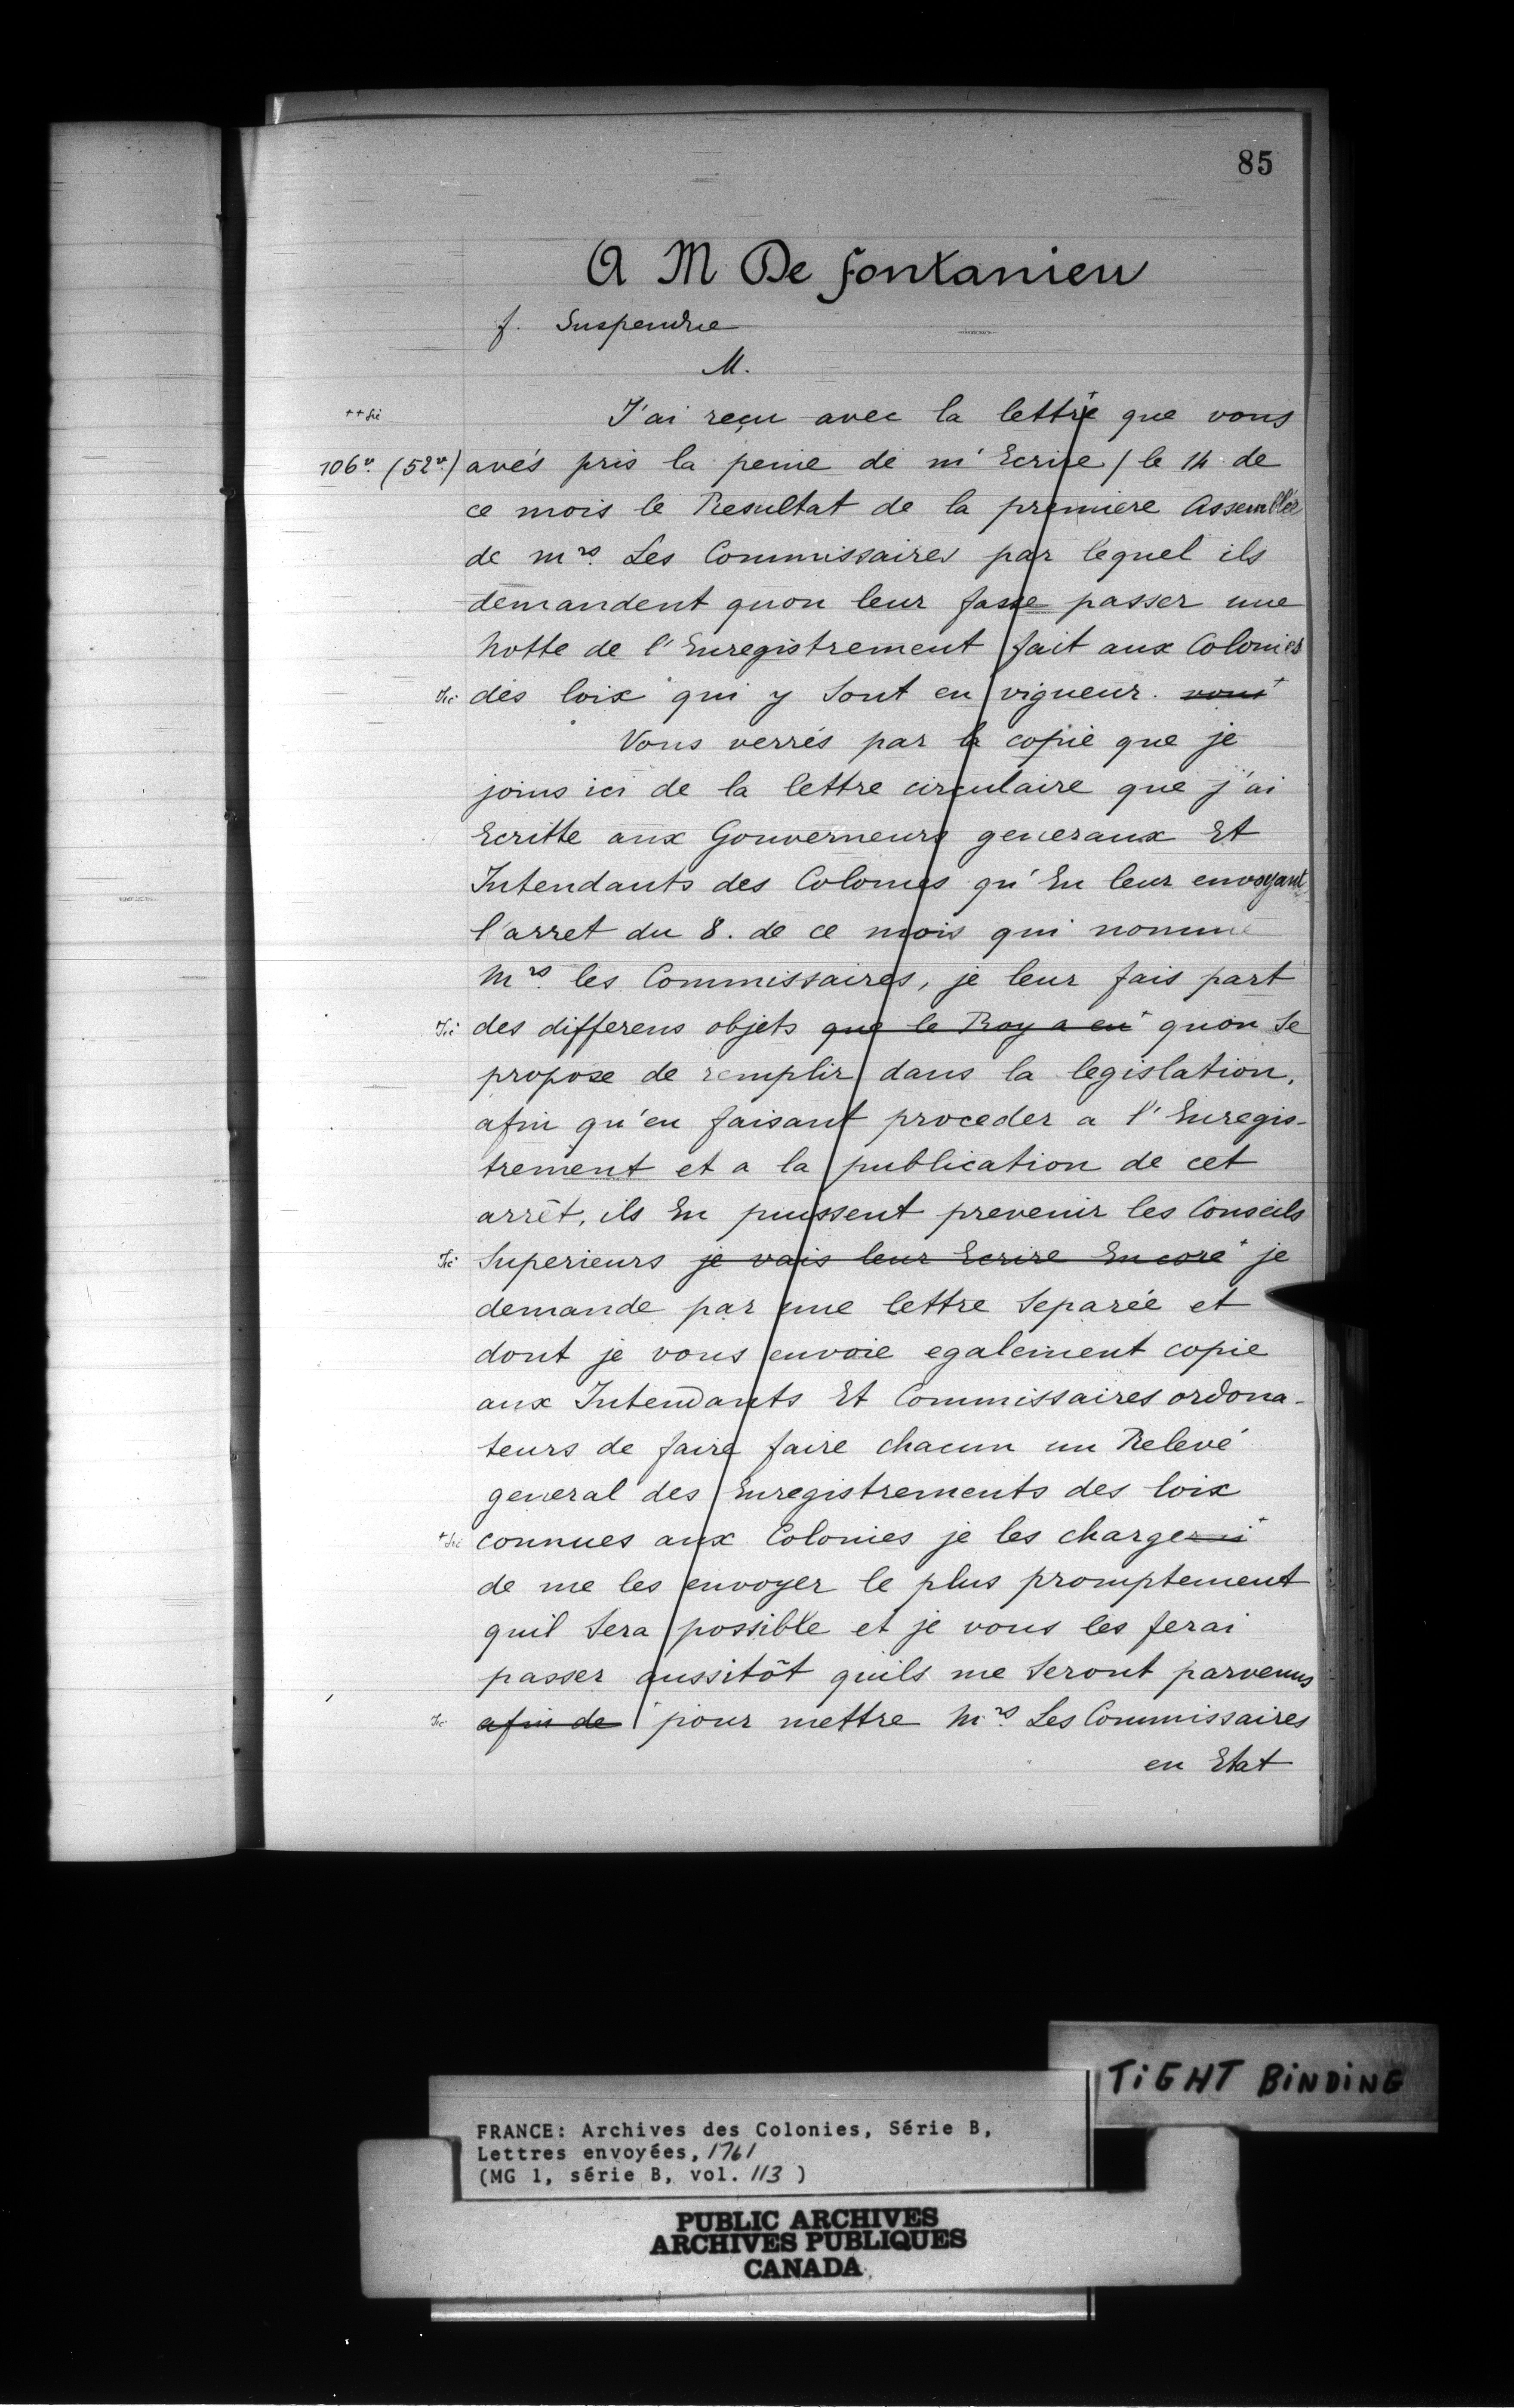 85
A M De fontanieu
f. Suspendre
M.
++ Sic
J'ai reçu avec la lettre+ que vous
106v. (52v.) avés pris la peine de m'Ecrire / le 14 de
ce mois le Resultat de la premiere Assemblée
de mrs. Les Commissaires par lequel ils
demandent quon leur fasse passer une
Notte de l'Enregistrement fait aux Colonies
Sic des loix qui y Sont en vigueur. vous+
Vous verrés par la copie que je
joins ici de la lettre circulaire que j'ai
Ecritte aux Gouverneurs generaux Et
Intendants des Colonies qu'En leur envoyant
l'arret du 8. de ce mois qui nomme
Mrs. les Commissaires, je leur fais part
Sic des differens objets que le Roy a eu+ quon Se
propose de remplir dans la legislation,
afin qu'en faisant proceder a l'Enregis-
trement et a la publication de cet
arrêt, ils En puissent prevenir les Conseils
Sic Superieurs je vais leur Ecrire Encore+ je
demande par une lettre Separée et
dont je vous envoie egalement copie
aux Intendants Et Commissaires ordona-
teurs de faire faire chacun un Relevé
general des Enregistrements des loix
+Sic connues aux Colonies je les chargerai+
de me les envoyer le plus promptement
quil Sera possible et je vous les ferai
passer aussitôt quils me Seront parvenus
Sic afin de pour mettre Mrs. Les Commissaires
en Etat
TIGHT BINDING
FRANCE: Archives des Colonies, Série B,
Lettres envoyées, 1761
(MG 1, série B, vol. 113 )
PUBLIC ARCHIVES
ARCHIVES PUBLIQUES
CANADA